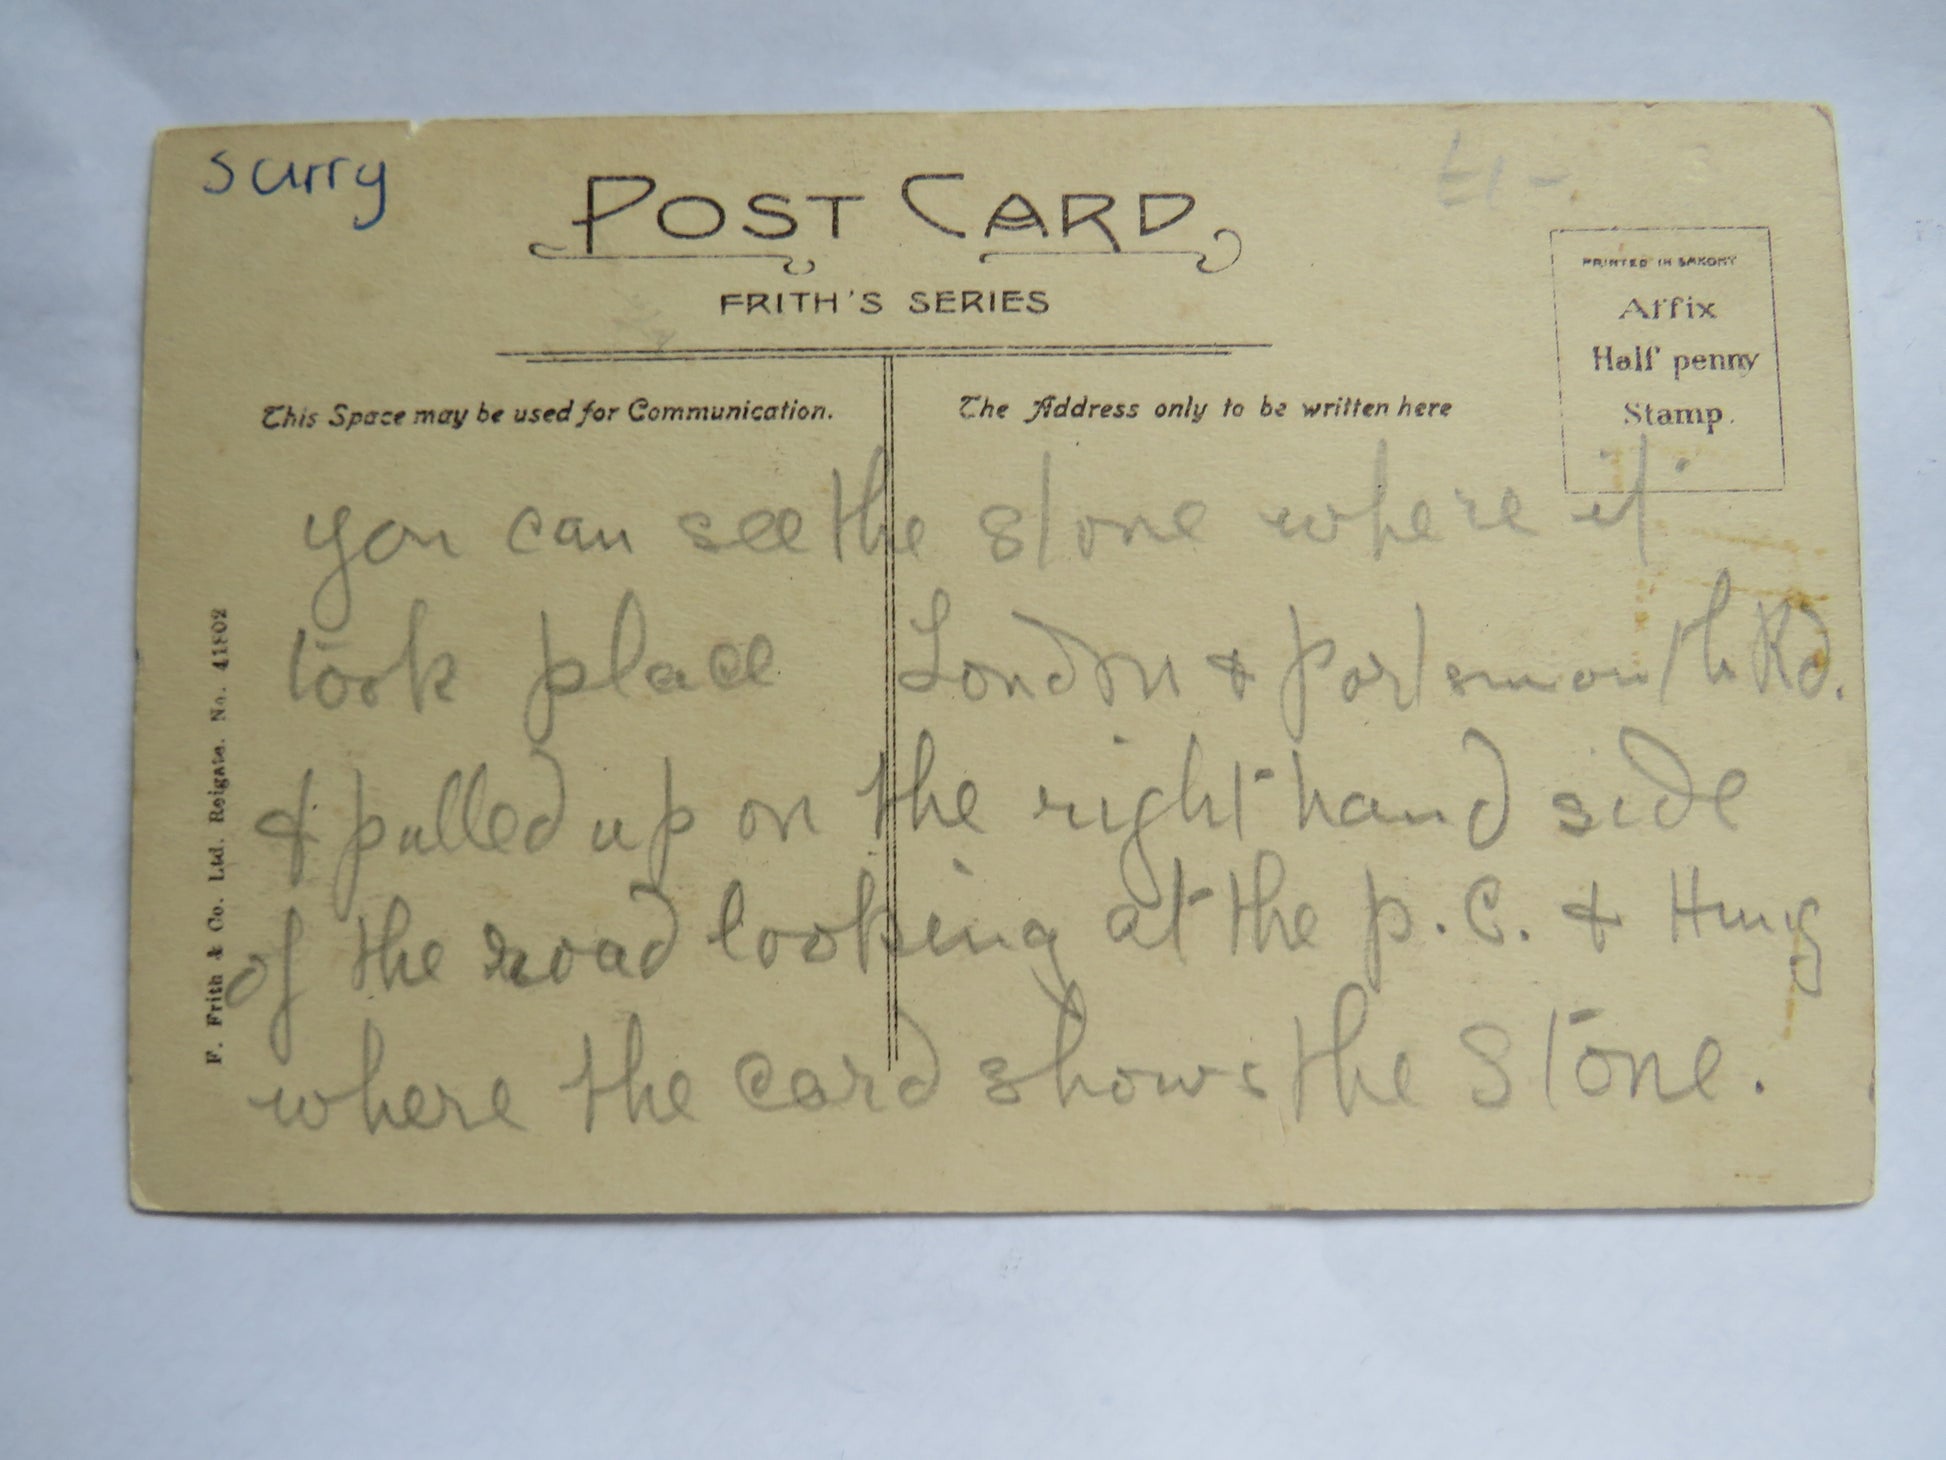 surry
£1-
POST CARD
FRITH'S SERIES
PRINTED IN SAXONY
Affix
Half penny
Stamp.
This Space may be used for Communication.
The Address only to be written here
you can see the stone where it
took place London & portsmouth Rd.
& pulled up on the right hand side
of the road looking at the p.C. & Hung
where the card shows the Stone.
F. Frith & Co. Ltd. Reigate. No. 41802